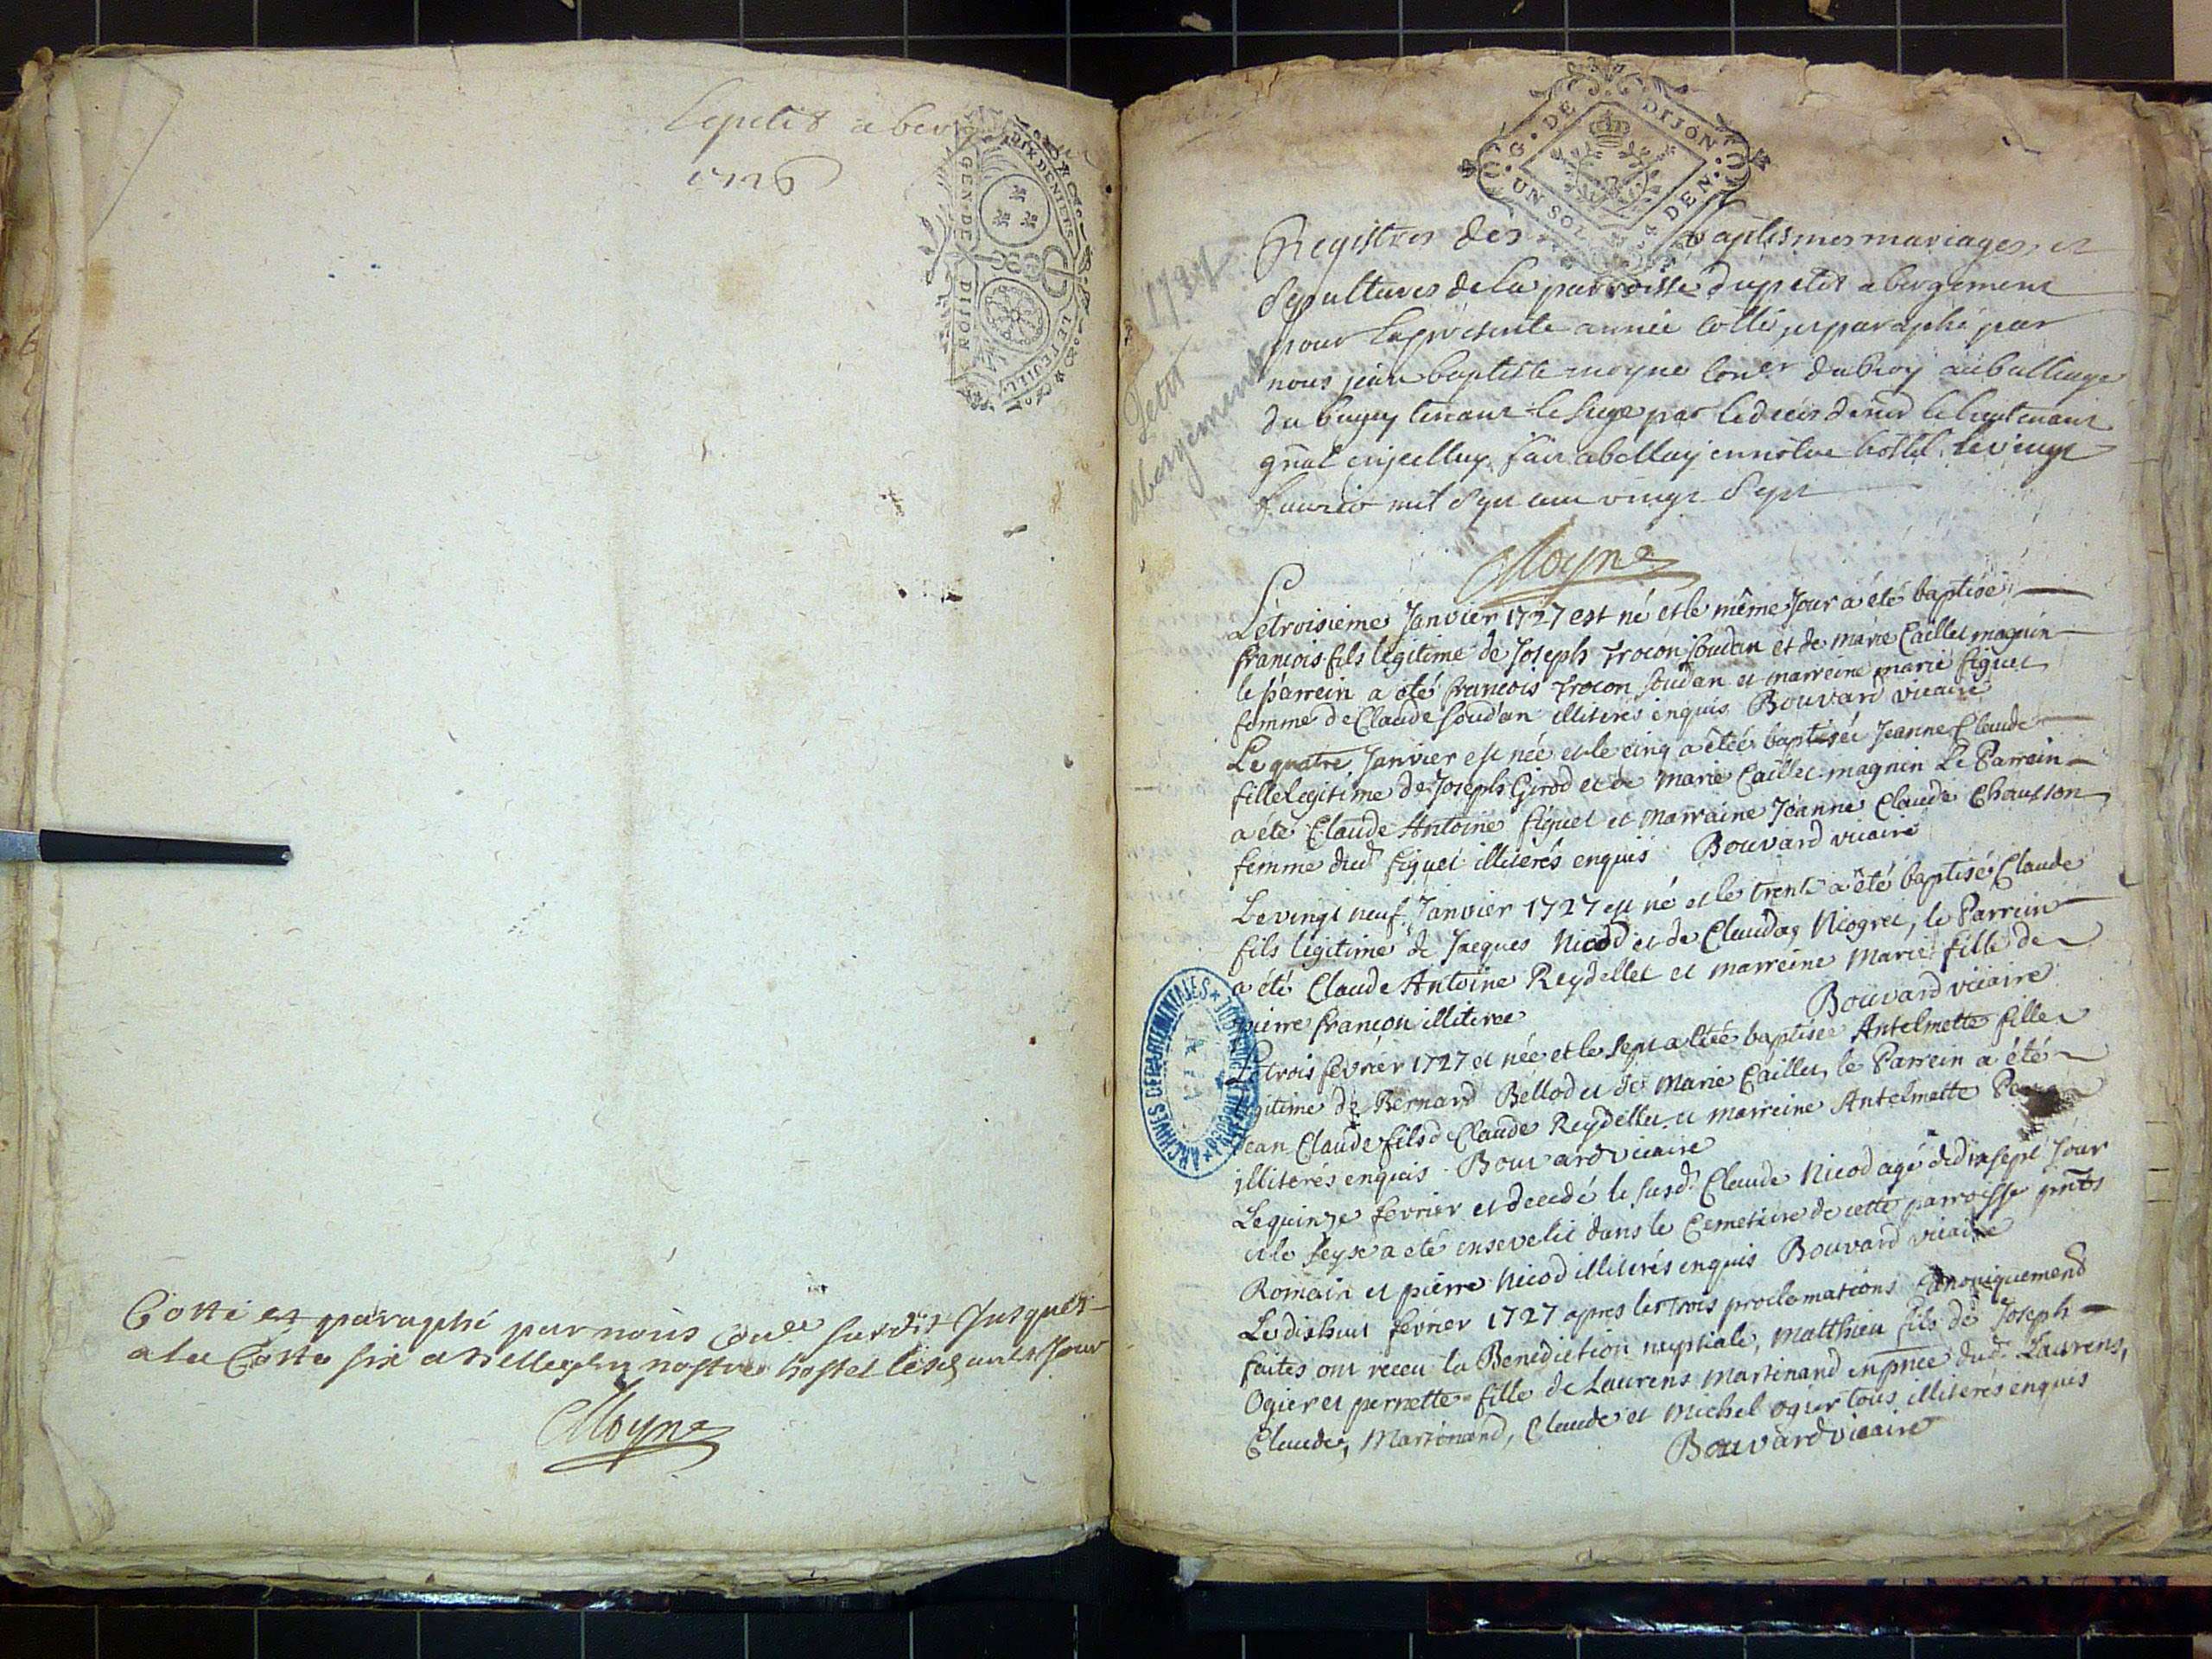 Lepetit aberg
1726
DIX DENIERS
LE FEUILL.
GEN. DE DIJON
Cotté et paraphé par nous Coner susdit Jusques
a la Cotte six a Belley en nostre hostel les an et Jour
Moyne
G. DE DIJON
UN SOL 4 DEN.
1727
Petit
abergement
Registres des baptismes mariages et
Sepultures de la parroisse du petit abergement
pour la presente année Cotté et paraphé par
nous jean baptiste moyne Coner du Roy au balliage
du bugey tenant le siege par le deces de mr le lieutenant
gnal en jcelluy fait a bellay en nôtre hostel le vingt
Janvier mil sept cent vingt Sept
Moyne
Le troisieme Janvier 1727 est né et le même Jour a été baptisé
francois fils légitime de Joseph Trocon Soudan et de marie Caillet magnin
le parrein a été francois Trocon Soudan et marreine marie figuet
femme de Claude Soudan illiterés enquis Bouvard vicaire
Le quatre Janvier est née et le cinq a étéé baptisée Jeanne Claude
fille legitime de Joseph Girod et de Marie Caillet magnin Le Parrein
a été Claude Antoine figuet et Marraine Jeanne Claude Chausson
femme dud figuet illiterés enquis Bouvard vicaire
Le vingt neuf Janvier 1727 est né et le trente a été baptisé Claude
fils légitime de Jacques Nicod et de Clauda Nicogret, le Parrein
a été Claude Antoine Reydellet et marreine Marie fille de
pierre françon illiteree Bouvard vicaire
Le trois fevrier 1727 et née et le sept a étéé baptisée Antelmette fille
légitime de Bernard Bellod et de Marie Caillet, le Parrein a été
Jean Claude fils d Claude Reydellet et marreine Antelmette
illiterés enquis Bouvard vicaire
Le quinze fevrier et decedé le susd. Claude Nicod agé de dix sept Jour
et le seyse a été enseveli dans le Cemetiere de cette parroisse pnts
Romain et pierre Nicod illiterés enquis Bouvard vicaire
Le dishuit fevrier 1727 apres les trois proclamations Canoniquement
faites ont receu la Benediction nuptiale, Matthieu fils de Joseph
Ogier et pernette fille de Laurens Martinand en pnce dud. Laurens,
Claude, Martinand, Claude et Michel ogier tous illiterés enquis
Bouvard vicaire
ARCHIVES DEPARTEMENTALES